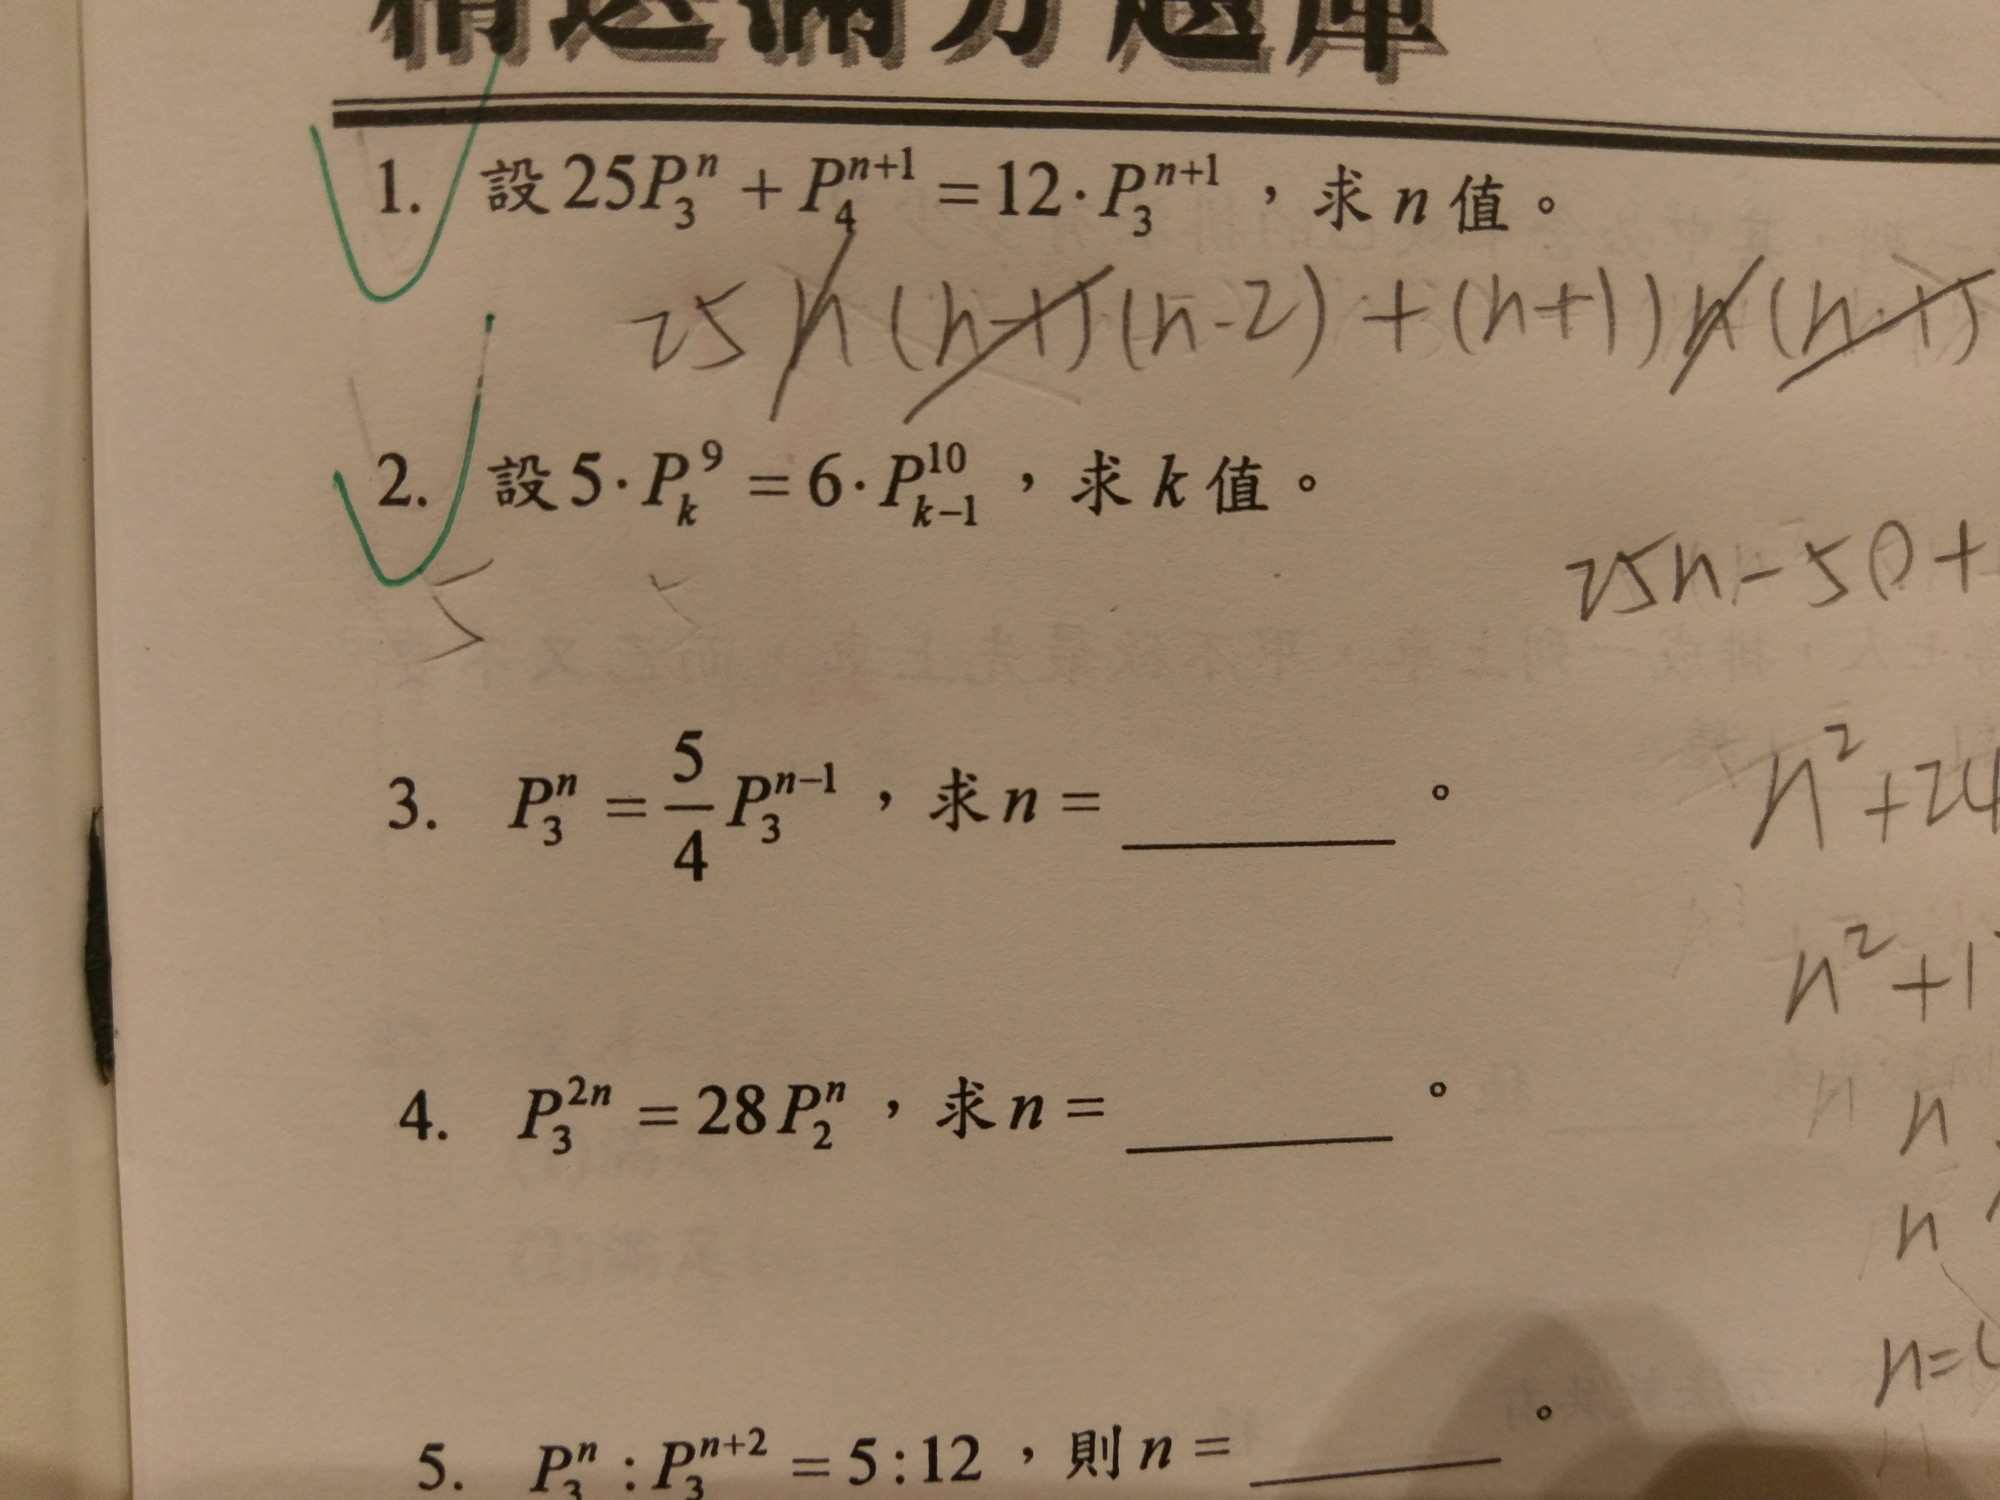 精選滿分題庫
1. 設25P₃ⁿ + P₄ⁿ⁺¹ = 12·P₃ⁿ⁺¹，求n值。
25n(n-1)(n-2)+(n+1)n(n-1)
2. 設5·P_k⁹ = 6·P_{k-1}¹⁰，求k值。
25n-50+
3. P₃ⁿ = 5/4 P₃ⁿ⁻¹，求n = ______。
n²+24
n²+1
4. P₃²ⁿ = 28P₂ⁿ，求n = ______。
n
n
n=
5. P₃ⁿ : P₃ⁿ⁺² = 5:12，則n = ______。